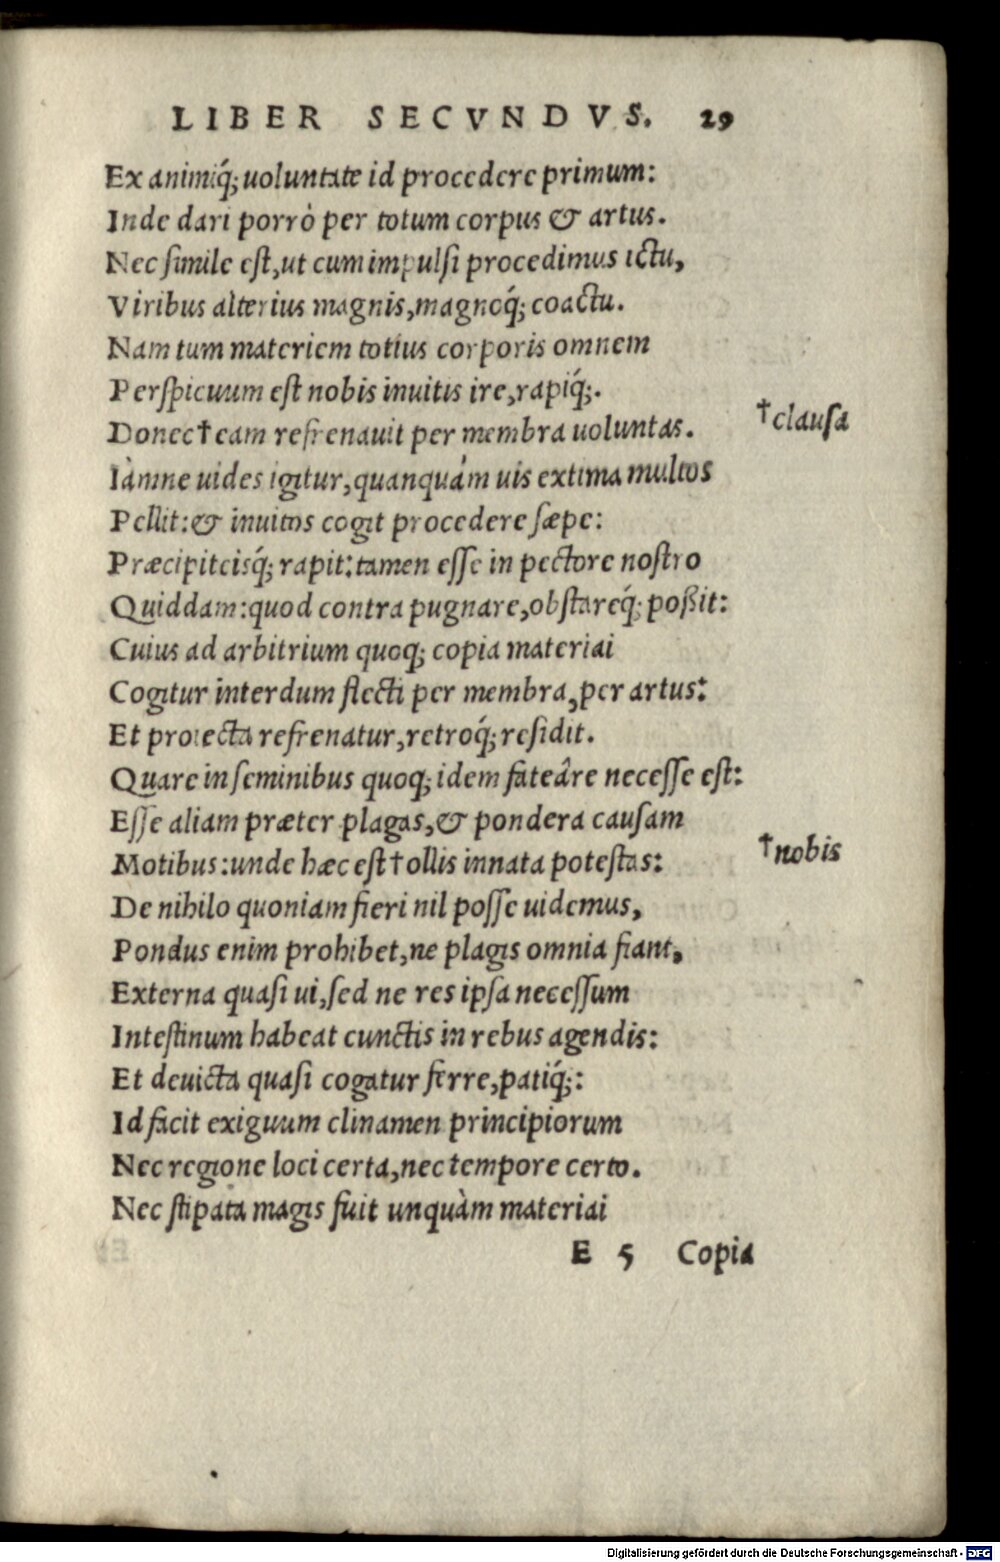 LIBER SECVNDVS. 29
Ex animiq́; uoluntate id procedere primum:
Inde dari porrò per totum corpus & artus.
Nec simile est, ut cum impulsi procedimus ictu,
Viribus alterius magnis, magnoq́; coactu.
Nam tum materiem totius corporis omnem
Perspicuum est nobis inuitis ire, rapiq́;.
Donec † eam refrenauit per membra uoluntas. † clausa
Iàmne uides igitur, quanquàm uis extima multos
Pellit: & inuitos cogit procedere sæpe:
Præcipiteisq́; rapit: tamen esse in pectore nostro
Quiddam: quod contra pugnare, obstareq́; poßit:
Cuius ad arbitrium quoq; copia materiai
Cogitur interdum flecti per membra, per artus:
Et proiecta refrenatur, retroq́; residit.
Quare in seminibus quoq; idem fateâre necesse est:
Esse aliam præter plagas, & pondera causam
Motibus: unde hæc est † ollis innata potestas: † nobis
De nihilo quoniam fieri nil posse uidemus,
Pondus enim prohibet, ne plagis omnia fiant,
Externa quasi ui, sed ne res ipsa necessum
Intestinum habeat cunctis in rebus agendis:
Et deuicta quasi cogatur ferre, patiq́;:
Id facit exiguum clinamen principiorum
Nec regione loci certa, nec tempore certo.
Nec stipata magis fuit unquàm materiai
E 5 Copia
Digitalisierung gefördert durch die Deutsche Forschungsgemeinschaft - DFG